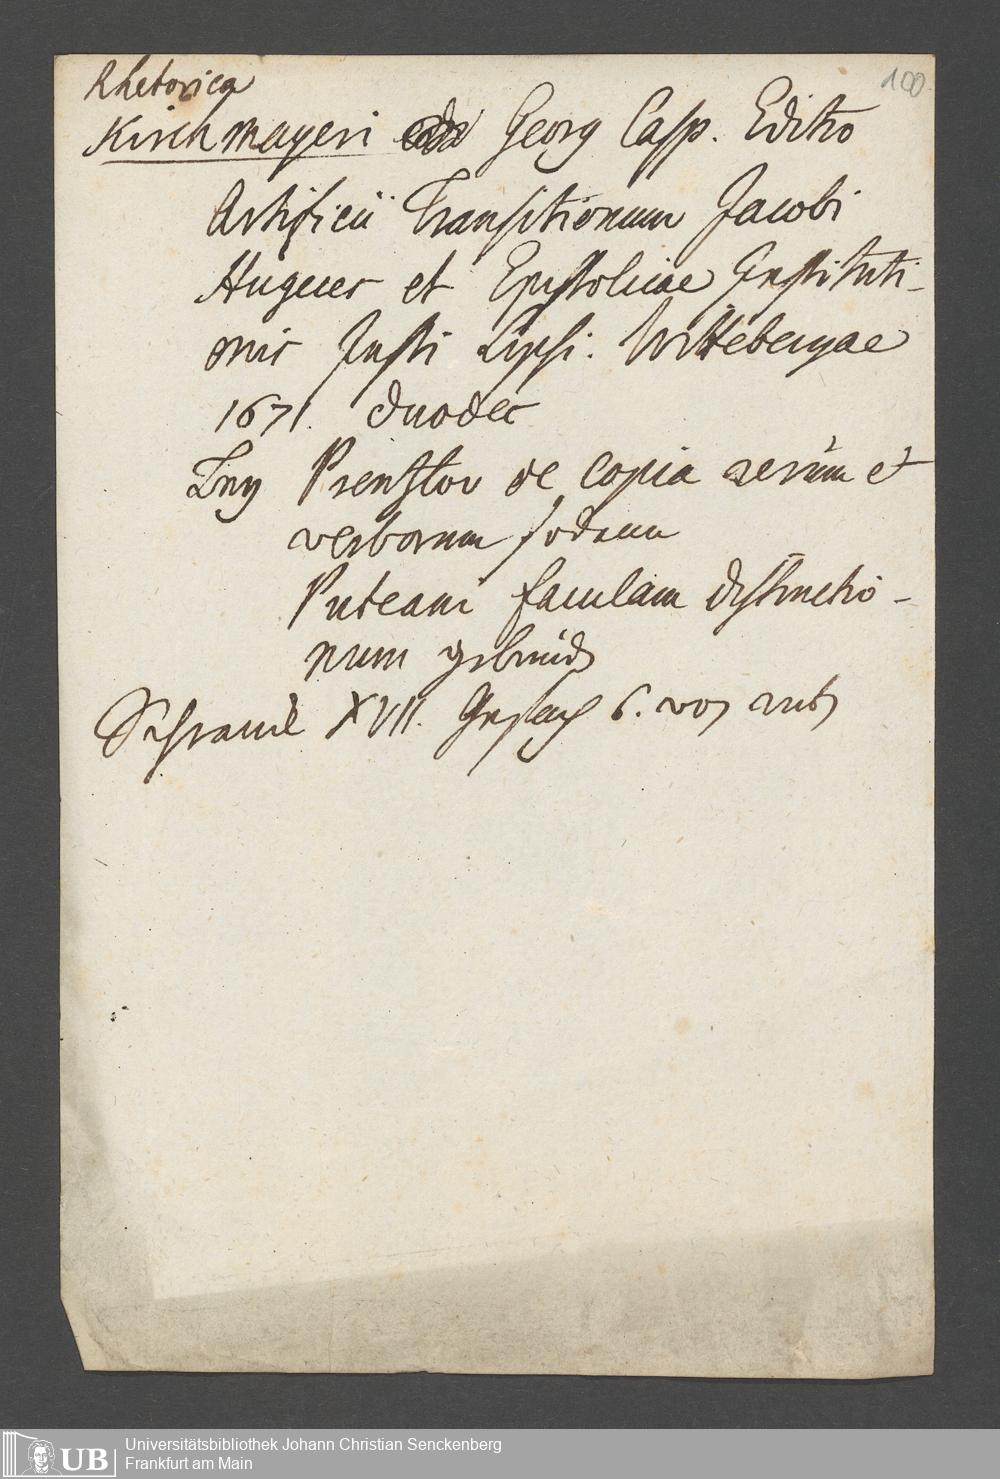 Rhetorica
100.
Kirchmayeri Georg Casp. Editio
Artificii Transitionum Jacobi
Hugues et Epistolicae Instituti-
onis Justi Lipsi. Wittebergae
1671. duodec
de copia rerum et
verborum
Puteani faculam distinctio-
num
Schranck XVII. 6. von
Universitätsbibliothek Johann Christian Senckenberg
Frankfurt am Main
UB